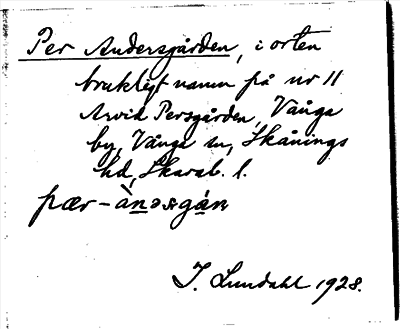 Per Andersgården, i orten
brukligt namn på nr 11
Arvid Persgården, Vånga
by, Vånga sn, Skånings
hd, Skarab. l.
pær-ànəsgán
I. Lundahl 1928.